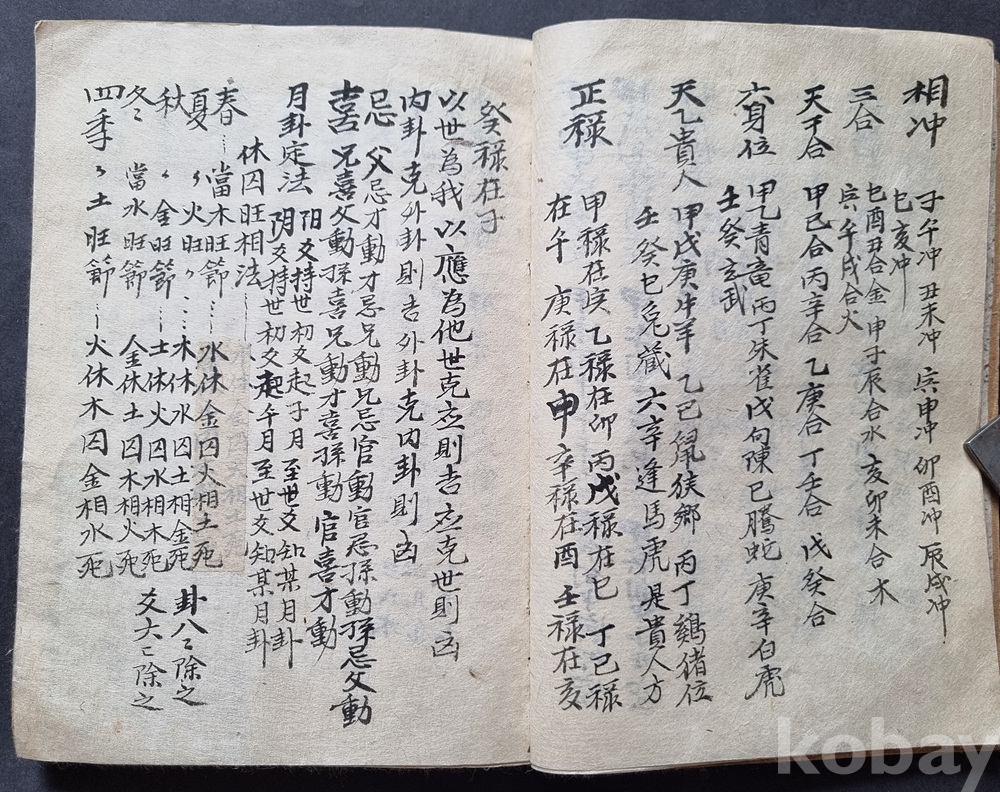 相冲 子午冲 丑未冲 寅申冲 卯酉冲 辰戌冲
巳亥冲
三合 巳酉丑合金 申子辰合水 亥卯未合木
寅午戌合火
天干合 甲己合 丙辛合 乙庚合 丁壬合 戊癸合
六身位 甲乙青竜 丙丁朱雀 戊句陳 己騰蛇 庚辛白虎
壬癸玄武
天乙貴人 甲戊庚牛羊 乙己鼠猴郷 丙丁鷄猪位
壬癸巳兔蔵 六辛逢馬虎 是貴人方
正禄 甲禄在寅 乙禄在卯 丙戊禄在巳 丁己禄
在午 庚禄在申 辛禄在酉 壬禄在亥
癸禄在子
以世為我 以應為他 世克应則吉 应克世則凶
内卦克外卦則吉 外卦克内卦則凶
忌 父忌才動 才忌兄動 兄忌官動 官忌孫動 孫忌父動
喜 兄喜父動 孫喜兄動 才喜孫動 官喜才動
月卦定法 阳爻持世初爻起子月 至世爻知某月卦
阴爻持世初爻起午月 至世爻知某月卦
休囚旺相法
春 當木旺節 水休金囚火相土死
夏 〃火旺〃 木休水囚土相金死
秋 〃金旺節 土休火囚水相木死
冬 當水旺節 金休土囚木相火死
四季 〃土旺節 火休木囚金相水死
卦八〻除之
爻六〻除之
kobay